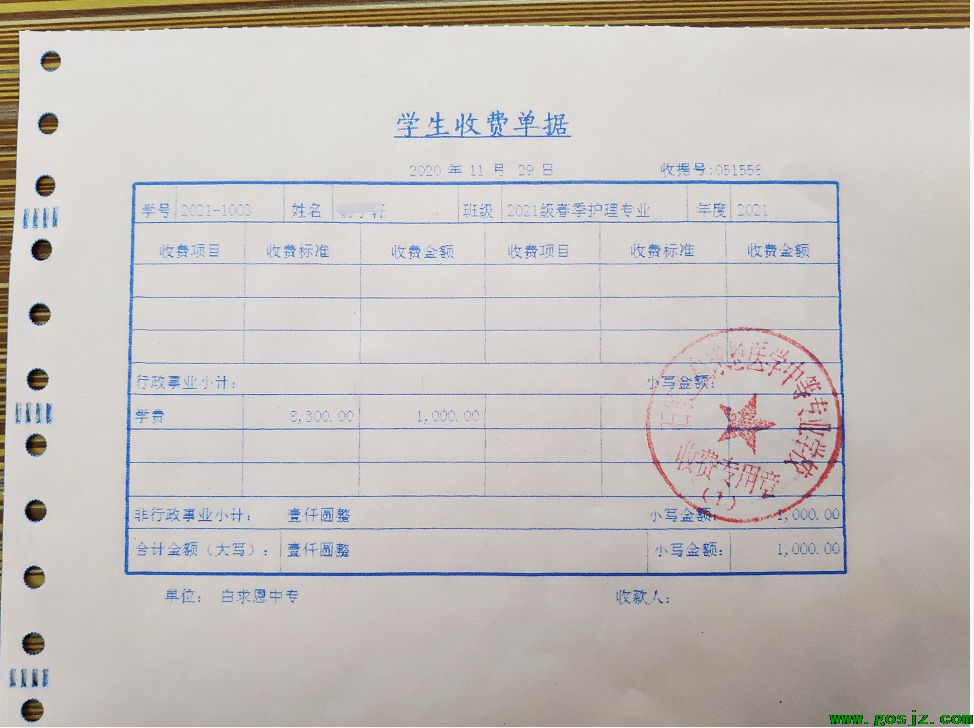 学生收费单据
2020 年 11 月 29 日 收据号:051556
学号 2021-1002 姓名 班级 2021级春季护理专业 年度 2021
收费项目 收费标准 收费金额 收费项目 收费标准 收费金额
行政事业小计: 小写金额:
学费 8,300.00 1,000.00
非行政事业小计: 壹仟圆整 小写金额: 1,000.00
合计金额(大写): 壹仟圆整 小写金额: 1,000.00
单位: 白求恩中专 收款人:
医学中等专业学校
收费专用章
(1)
www.gosjz.com